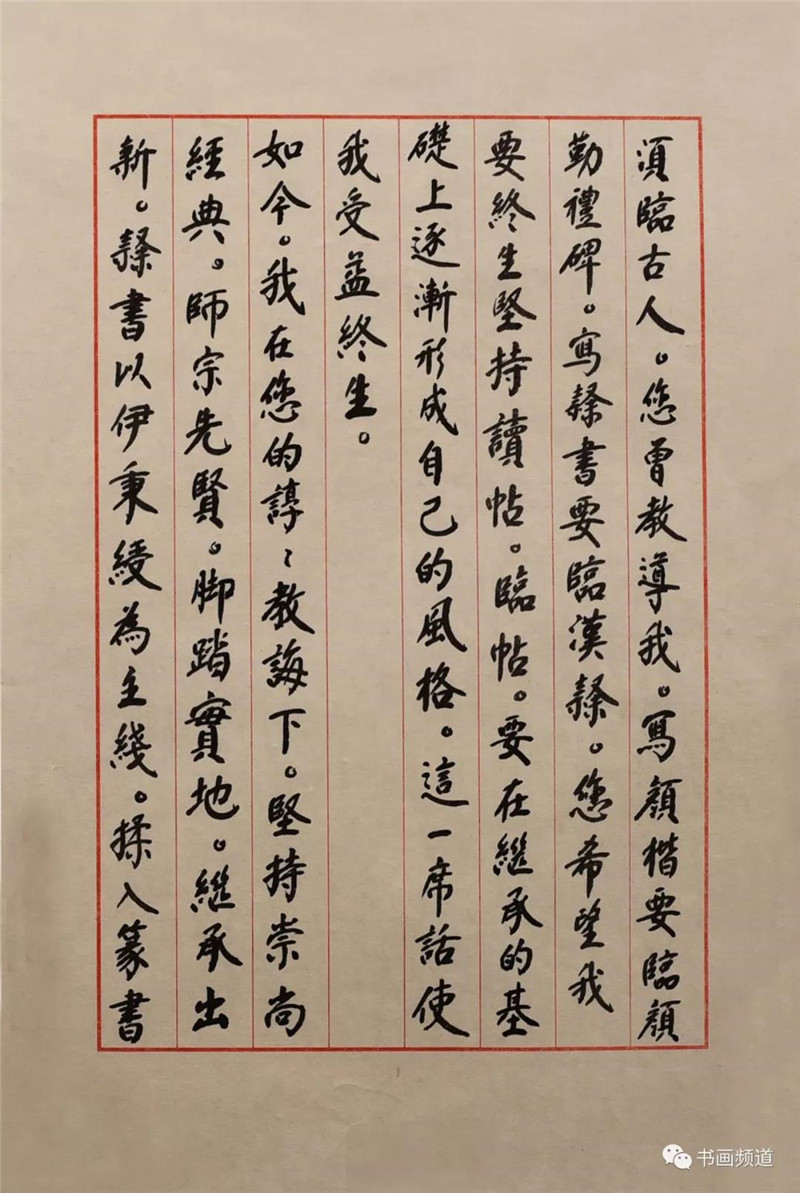 須臨古人。您曾教導我。寫顏楷要臨顏
勤禮碑。寫隸書要臨漢隸。您希望我
要終生堅持讀帖。臨帖。要在繼承的基
礎上逐漸形成自己的風格。這一席話使
我受益終生。
如今。我在您的諄〻教誨下。堅持崇尚
經典。師宗先賢。脚踏實地。繼承出
新。隸書以伊秉綬為主綫。揉入篆書
书画频道